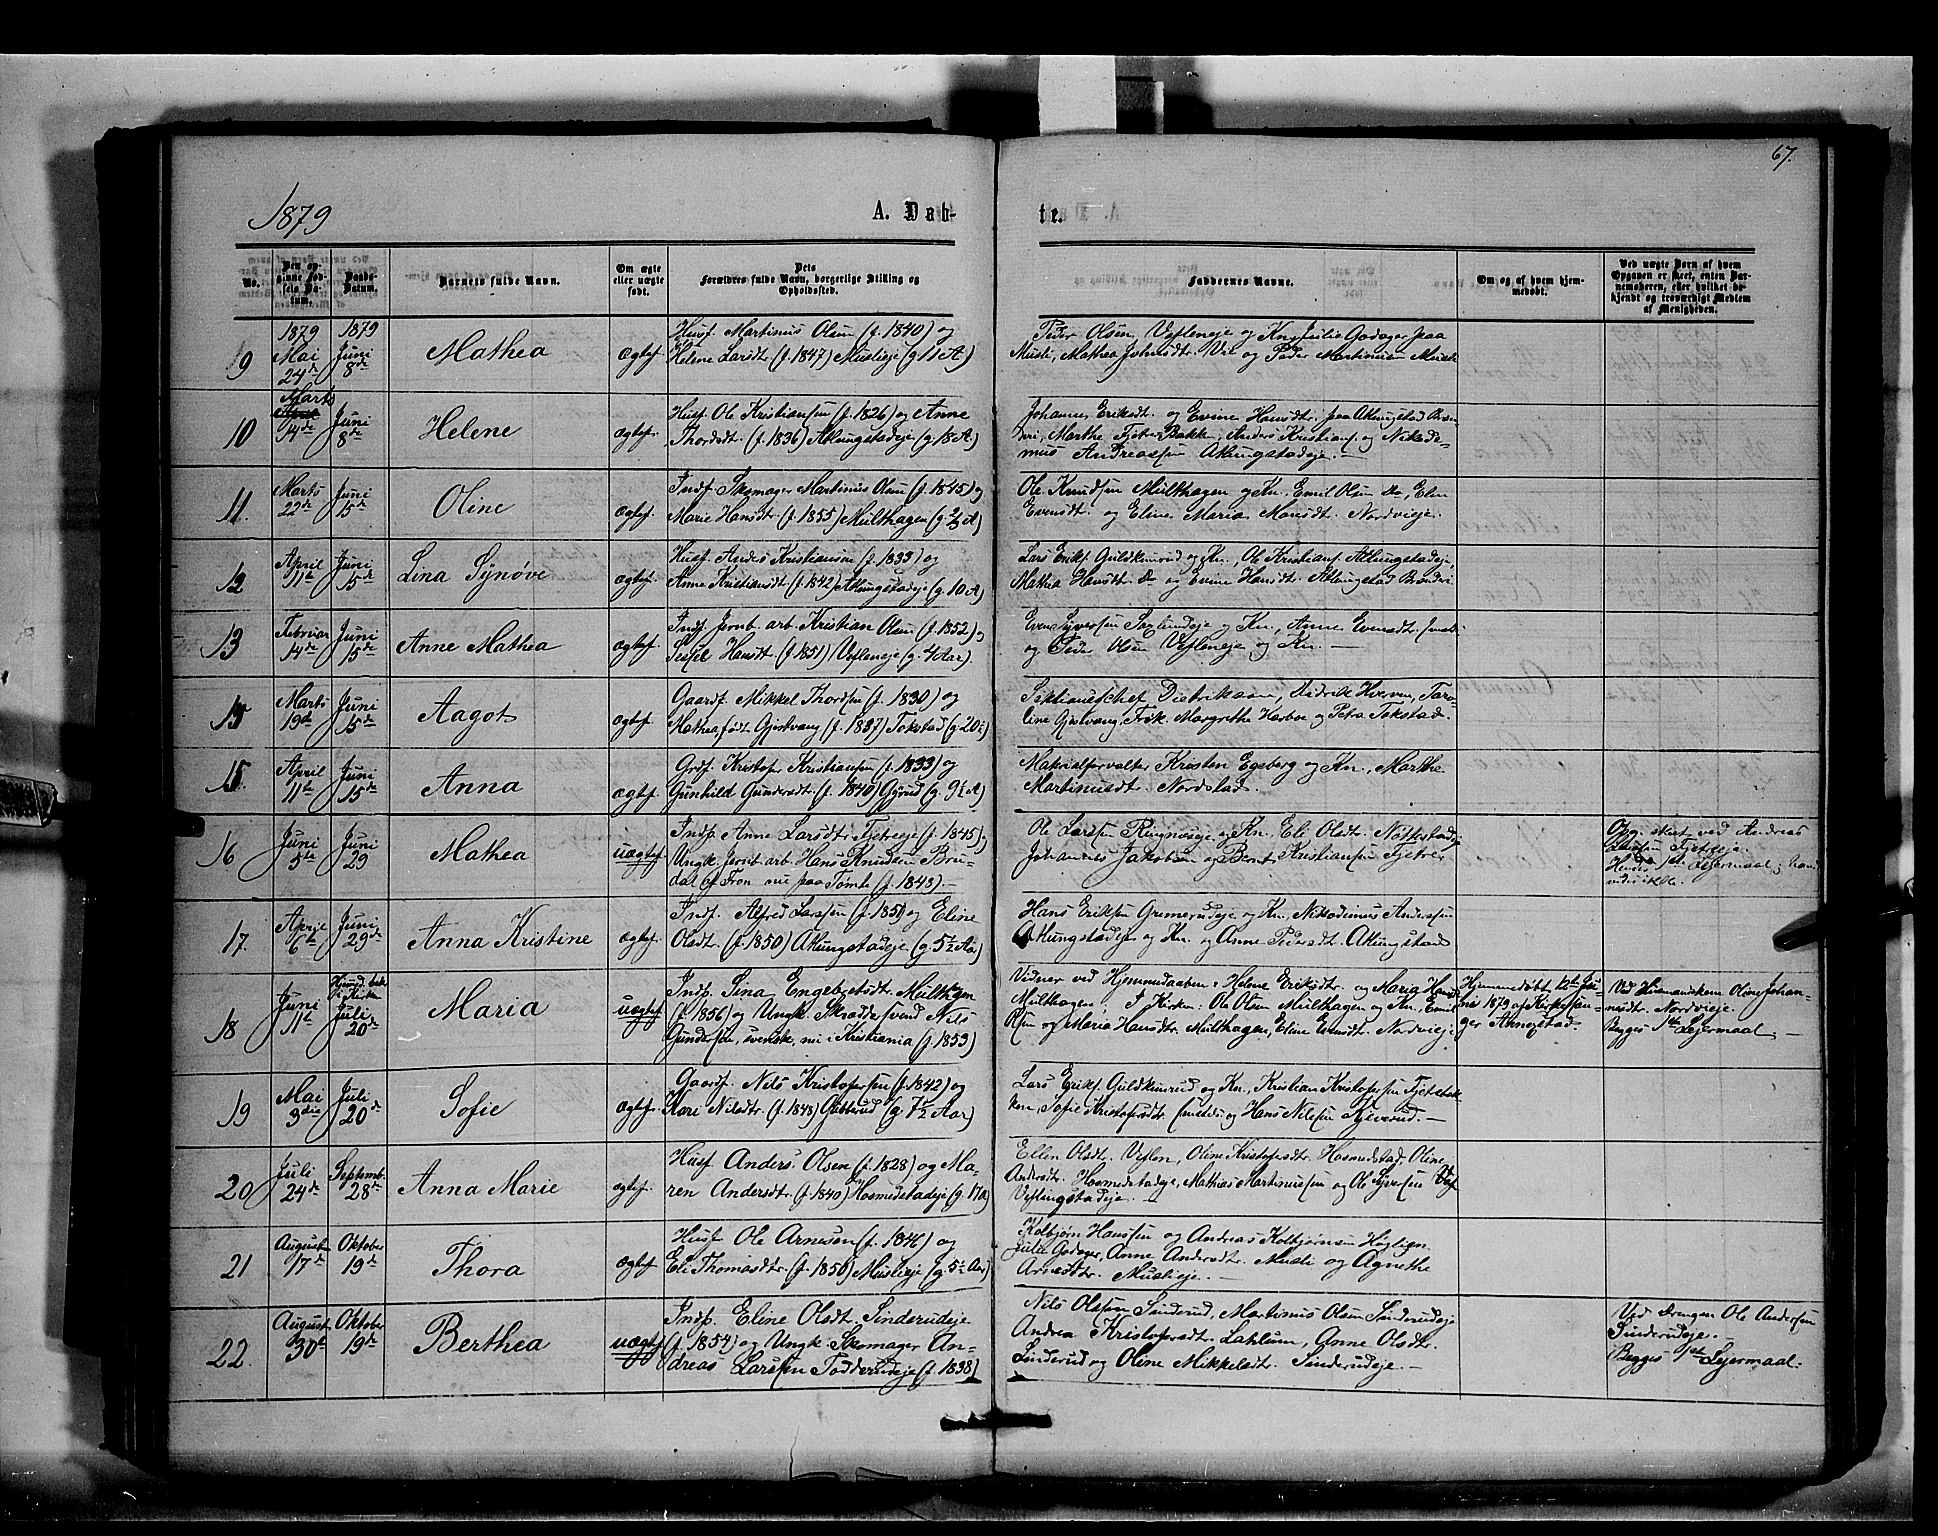 67.
1879
A. Dåb-
te.
No.
Den opginne Fødsels Datum.
Daabs-Datum.
Barnets fulde Navn.
Om ægte eller uægte født.
Dets Forældres fulde Navn, borgerlige Stilling og Opholdssted.
Faddernes Navne.
Om og af hvem hjemmedøbt.
Ved uægte Børn af hvem Opgaven er skeet, enten Barnemoderen, eller hvilket bekjendt og troværdigt Medlem af Menigheden.
9
1879
Mai
24de
1879
Juni
8de
Mathea
ægtef.
Husf. Martinus Olsen (f. 1840) og
Helene Larsdt. (f. 1847) Muslieje (g. 11 A)
Peder Olsen Vestleneje og Kn, Julie Godager paa
Musli, Mathea Johnsdt. og Peder Martinusen Musli
10
Marts
14de
Juni
8de
Helene
ægtef.
Husf. Ole Kristiansen (f. 1826) og Anne
Thordsdt. (f. 1836) Atlungstadeje (g. 18 A)
Johanne Eriksdt. og Evine Hansdt. paa Atlungstad
Marthe Fjetre Bakken, Anders Kristians. og Nikode-
mus Andreassen Atlungstadeje. —
11.
Marts
22de
Juni
15de
Oline
ægtef.
Indf. Skomager Martinus Olsen (f. 1845) og
Marie Hansdt. (f. 1855) Mülthagen (g. A)
Ole Knudsen Mülthagen og Kn. Emil Olsen do, Elen
Evensdt. og Eline Maria Hansdt. Nordvieje.
12
April
11te
Juni
15de
Lina Synøve
ægtef.
Husf. Anders Kristiansen (f. 1833) og
Anne Kristiansdt. (f. 1842) Atlungstadeje (g. 10 A)
Lars Eriks. Guldkinrud og Kn., Ole Kristians. Atlungstadeje,
Mathea Hansdt. do og Evine Hansdt. Atlungstad
13
Februar
14de
Juni
15de
Anne Mathea
ægtef.
Indf. Jernb. arb. Kristian Olsen (f. 1852) og
Sissel Hansdt. (f. 1851) Vestleneje (g. 4 Aar).
Even Syversen og Kn, Anne Evensdt.
og Peder Olsen Vestleneje og Kn. —
15
Marts
19de
Juni
15de
Aagot
ægtef.
Gaardf. Mikkel Thordsen (f. 1830) og
Mathea født Gjestvang (f. 1837) Tokstad (g. 20 )
Sektionschef Diedrikson, Didrik Hverven, Karo-
line Gjestvang, Frøk. Margrethe Harboe og Petra Tokstad.
15.
April
11te
Juni
15de
Anna
ægtef.
Grdf. Kristofer Kristiansen (f. 1833) og
Gunhild Gundersdt. (f. 1840) Gyrud (g. 9½ A)
Materialforvalter Kristen Egeberg og Kn., Marthe
Martinusdt. Nordstad.
16
Juni
5te
Juni
29
Mathea
uægtef.
Indp. Anne Larsdtr. Fjetreeje (f. 1845),
Ungk. Jernb. arb. Hans Knudsen Bru-
dal af Fron nu paa Tømte (f. 1848). —
Ole Larsen Ringneseje og Kn., Eli Olsdt. Nøtlestadeje
Johannes Jakobsen og Bernt Kristiansen Fjetre.
Opg. skeet ved Andreas
Larsen Fjetreeje.
Hendes 1ste Lejermaal; hans
vides ikke.
17.
April
6te
Juni
29de
Anna Kristine
ægtef.
Indf. Alfred Larsen (f. 1851) og Eline
Olsdt. (f. 1850) Atlungstadeje (g. 5½ Aar)
Hans Eriksen Grimerudeje og Kn., Nikodemus Andersen
Atlungstadeje og Kn. og Anne Pedersdt. Atlungstad
18
Juni
11te
i Kirken
Juli
20de
Maria
uægtef.
Indp. Lina Engebretsdt. Mülthagen
(f. 1856) og Ungk. Skræddersvend Nils
Gundersen, svensk, nu i Kristiania (f. 1853)
Vidner ved Hjemmedaaben: Helene Eriksdt. og Maria Hansdt.
Mülthagen. I Kirken: Ole Olsen Mülthagen og Kn. Emil
Olsen og Maria Hansdt. Mülthagen, Eline Evensdt. Nordvieje.
Hjemmedøbt 12te Ju-
ni 1879 af Kirkesan-
ger Arnestad.
Ved Huusmandskonen Oline Johan-
nesdt. Nordvieje.
Begges 1ste Lejermaal —
19
Mai
3die
Juli
20de
Sofie
ægtef.
Gaardf. Nils Kristofersen (f. 1842) og
Kari Nilsdtr. (f. 1848) Gubberud (g. 7½ Aar)
Lars Eriks. Guldkinrud og Kn., Kristian Kristofersen Fjetrebak-
ken, Sofie Kristofersdt. og Hans Nilsen Kjeverud. —
20
Juli
24de
Septemb.
28de
Anna Marie
ægtef.
Husf. Anders Olsen (f. 1828) og Ma-
ren Andersdt. (f. 1840) Hosmedstadeje (g. 17 A)
Ellen Olsdt. Vestlen, Oline Kristofersdt. Hosmedstad, Oline
Andersdt. Hosmedstadeje, Mathias Martinussen og Ole Syversen
Vestlingstadeje. —
21
August
17de
Oktober
19de
Thora
ægtef.
Husf. Ole Arnesen (f. 1846) og
Eli Thomasdtr. (f. 1850) Muslieje (g. 5½ Aar)
Kolbjørn Hanssen og Andreas Kolbjørnsen Høglien,
Julie Godager, Anne Andersdt. Musli og Agnethe
Arnesdtr. Muslieje. —
22.
August
30te
Oktober
19de
Berthea
uægtef.
Indp. Eline Olsdt. Sinderudeje
(f. 1854) og Ungk. Skomager An-
dreas Larsen Todderudeje (f. 1838)
Nils Olsen Sinderud, Martinus Olsen Sinderudeje
Andrea Kristofersdt. Lahlum, Anne Olsdt.
Sinderud og Oline Mikkelsdt. Sinderudeje. —
Ved Drengen Ole Andersen
Sinderudeje. —
Begges 1ste Lejermaal.